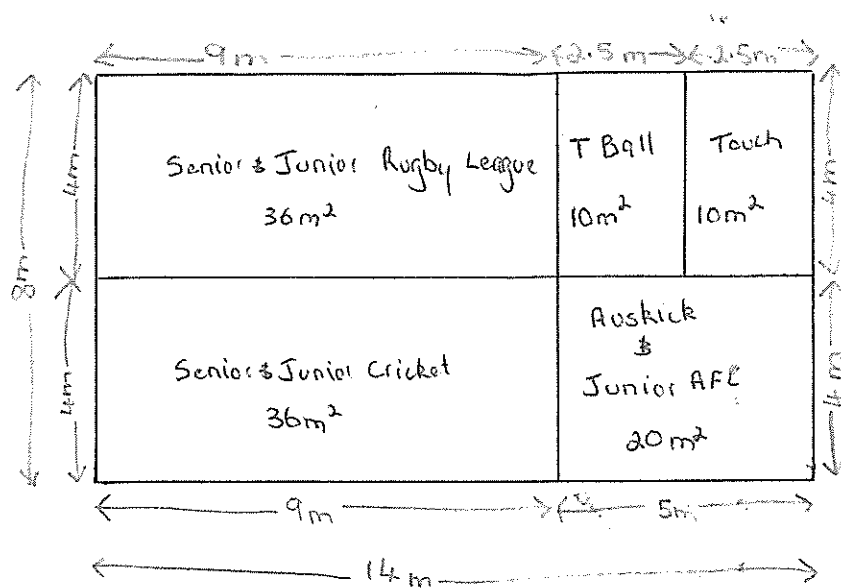 9m
2.5m
2.5m
8m
4m
Senior & Junior Rugby League
36m²
T Ball
10m²
Touch
10m²
4m
4m
Senior & Junior Cricket
36m²
Auskick
&
Junior AFL
20m²
4m
9m
5m
14m